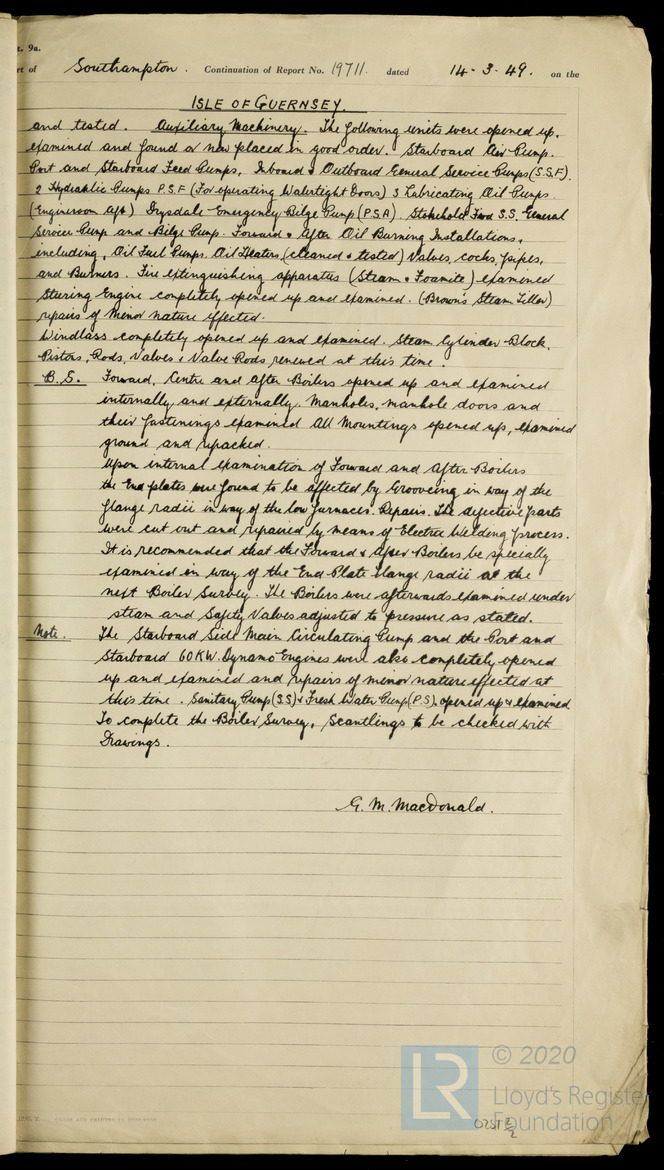 t. 9a.
rt of Southampton. Continuation of Report No. 19711. dated 14-3-49. on the
ISLE OF GUERNSEY.
and tested. Auxiliary Machinery. The following units were opened up,
examined and found or now placed in good order. Starboard Air Pump.
Port and Starboard Feed Pumps, Inboard & Outboard General Service Pumps (S.S.F).
2 Hydraulic Pumps P.S.F (For operating Watertight Doors) 3 Lubricating Oil Pumps.
(Engineroom aft) Drysdale Emergency Bilge Pump (P.S.A). Stokehold Fwd S.S. General
Service Pump and Bilge Pump. Forward & After Oil Burning Installations,
including, Oil Fuel Pumps. Oil Heaters, (cleaned & tested) Valves, cocks, pipes,
and Burners. Fire extinguishing apparatus (Steam & Foamite) examined
Steering Engine completely opened up and examined. (Brown's Steam Tiller)
repairs of minor nature effected.
Windlass completely opened up and examined. Steam Cylinder Block,
Pistons, Rods, Valves & Valve Rods, renewed at this time.
B.S. Forward, Centre and After Boilers opened up and examined
internally and externally. Manholes, manhole doors and
their fastenings examined All Mountings opened up, examined
ground and repacked.
Upon internal examination of Forward and After Boilers
the End plates were found to be affected by Grooveing in way of the
flange radii in way of the low furnaces. Repairs. The defective parts
were cut out and repaired by means of Electric Welding process.
It is recommended that the Forward & After Boilers be specially
examined in way of the End Plate flange radii at the
next Boiler Survey. The Boilers were afterwards examined under
steam and Safety Valves adjusted to pressure as stated.
Note. The Starboard Side Main Circulating Pump and the Port and
Starboard 60 KW. Dynamo Engines were also completely opened
up and examined and repairs of minor nature effected at
this time. Sanitary Pump (S.S) & Fresh Water Pump (P.S), opened up & examined
To complete the Boiler Survey, Scantlings to be checked with
Drawings.
G. M. MacDonald.
LR © 2020
Lloyd's Register
Foundation